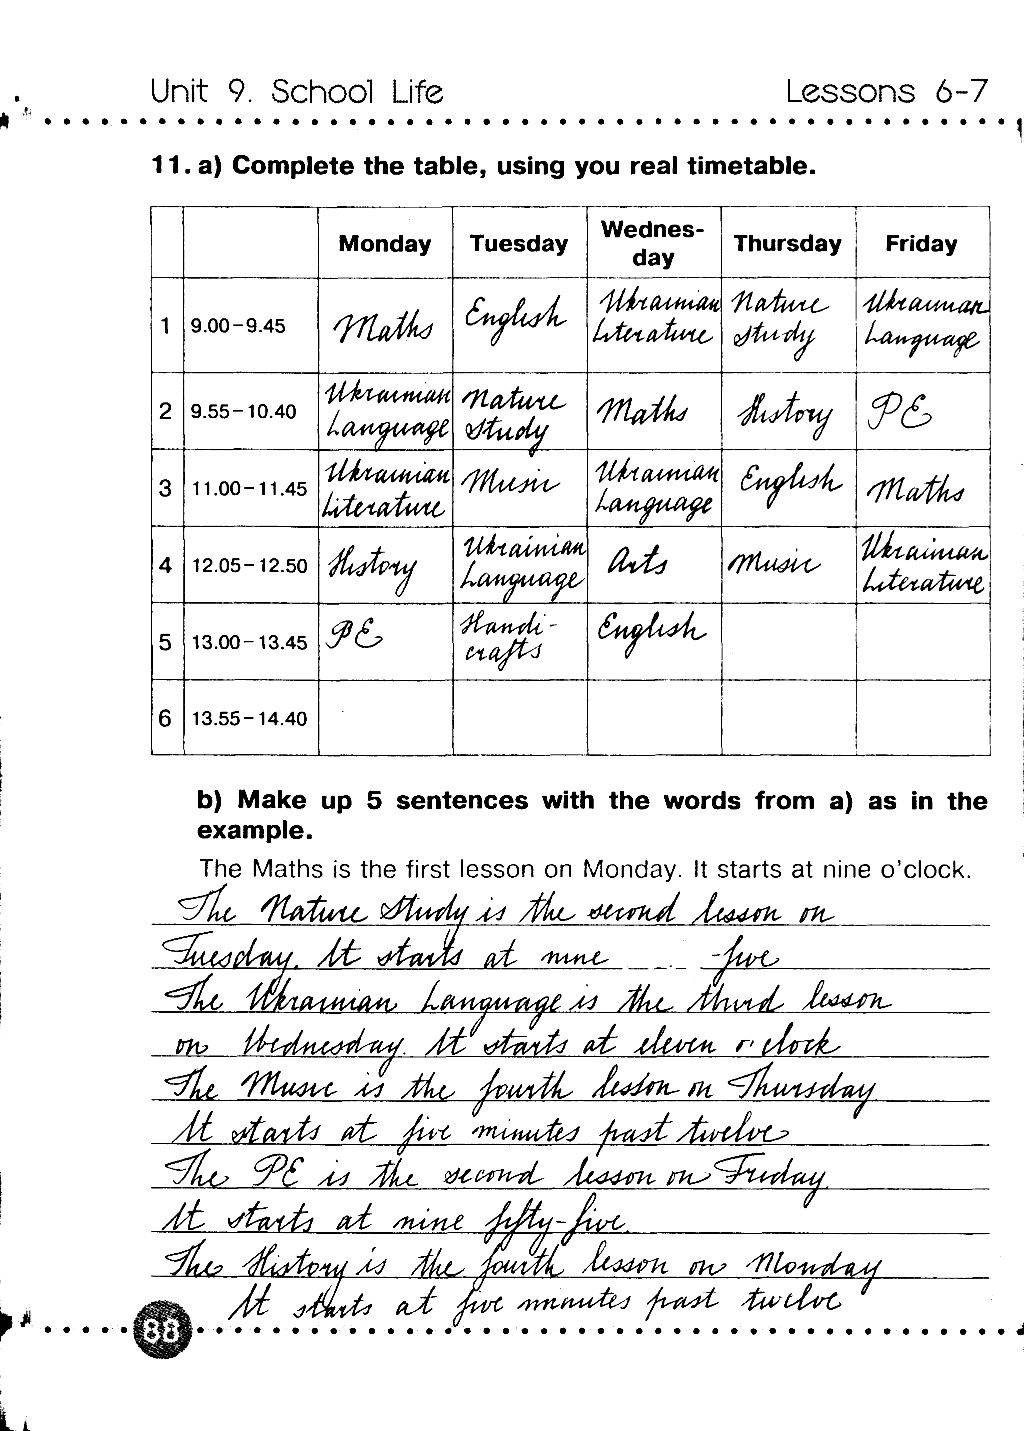 Unit 9. School Life Lessons 6-7
11. a) Complete the table, using you real timetable.
Monday Tuesday Wednes-day Thursday Friday
1 9.00-9.45 Maths English Ukrainian Literature Nature Study Ukrainian Language
2 9.55-10.40 Ukrainian Language Nature Study Maths History PE
3 11.00-11.45 Ukrainian Literature Music Ukrainian Language English Maths
4 12.05-12.50 History Ukrainian Language Arts Music Ukrainian Literature
5 13.00-13.45 PE Handi-crafts English
6 13.55-14.40
b) Make up 5 sentences with the words from a) as in the
example.
The Maths is the first lesson on Monday. It starts at nine o'clock.
The Nature Study is the second lesson on
Tuesday. It starts at nine -five
The Ukrainian Language is the third lesson
on Wednesday. It starts at eleven o'clock
The Music is the fourth lesson on Thursday
It starts at five minutes past twelve
The PE is the second lesson on Friday.
It starts at nine fifty-five.
The History is the fourth lesson on Monday
It starts at five minutes past twelve
88